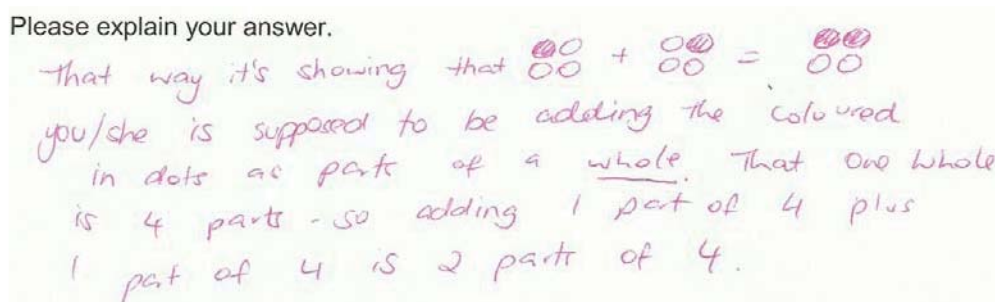 Please explain your answer.
That way it's showing that + =
you/she is supposed to be adding the coloured
in dots as parts of a whole. That one whole
is 4 parts - so adding 1 part of 4 plus
1 part of 4 is 2 parts of 4.